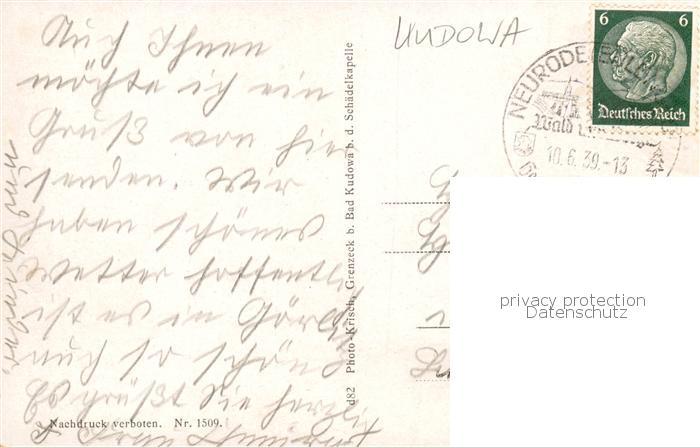 Auch Ihnen
möchte ich ein
Gruß von hier
senden. Wir
haben schönes
Wetter hoffentl
ist es in Görl
auch so schön
Es grüßt Sie herzl
Frau
Nachdruck verboten. Nr. 1509.
d82 Photo-Krisch, Grenzeck b. Bad Kudowa b. d. Schädelkapelle
KUDOWA
6 6
Deutsches Reich
NEURODE (EULE
Wald
10.6.39.-13
privacy protection
Datenschutz